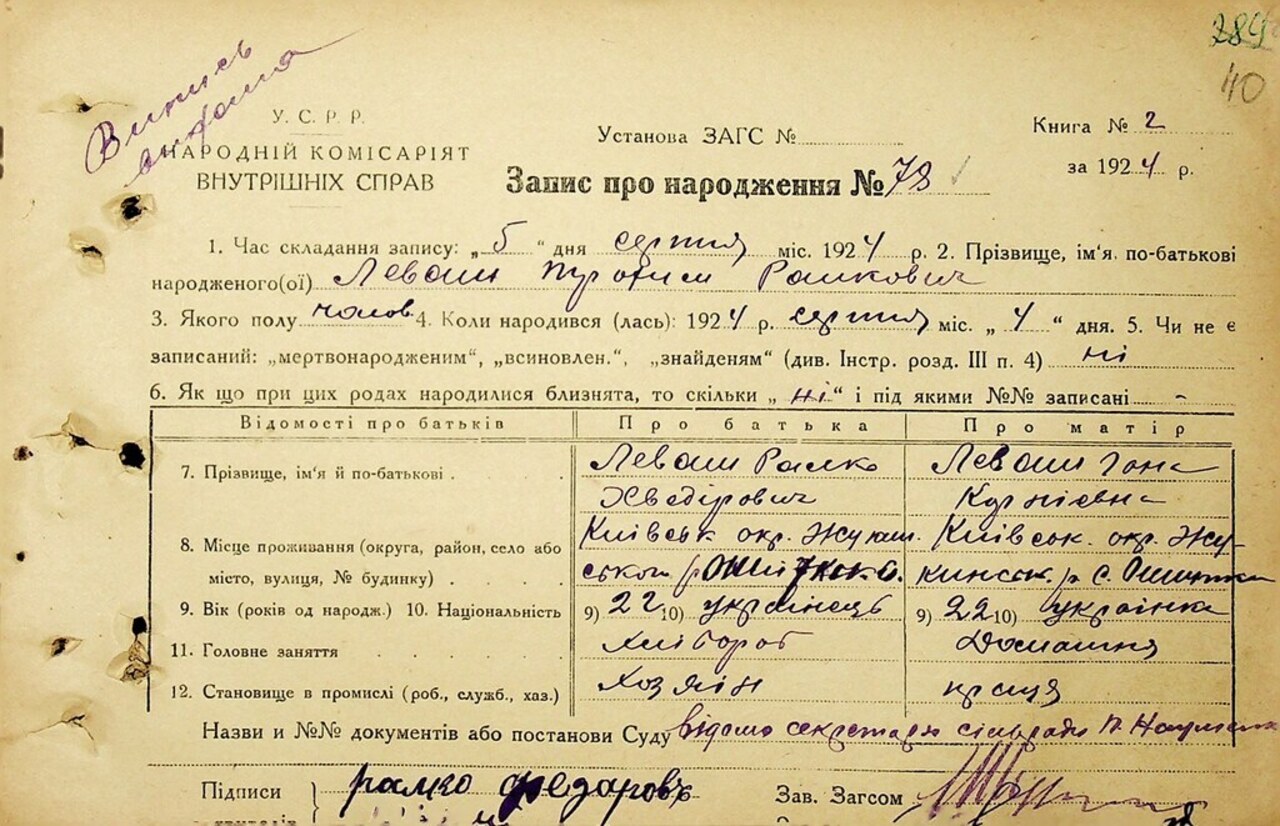 289
40
Випись
видана
У. С. Р. Р.
НАРОДНІЙ КОМІСАРІЯТ
ВНУТРІШНІХ СПРАВ
Установа ЗАГС №
Книга № 2
за 1924 р.
Запис про народження № 78
1. Час складання запису: „5“ дня серпня міс. 1924 р. 2. Прізвище, ім'я, по-батькові
народженого(ої) Леваш Рамкович
3. Якого полу чолов. 4. Коли народився (лась): 1924 р. серпня міс. „4“ дня. 5. Чи не є
записаний: „мертвонародженим“, „всиновлен.“, „знайденям“ (див. Інстр. розд. III п. 4) ні
6. Як що при цих родах народилися близнята, то скільки „ні“ і під якими №№ записані -
Відомості про батьків Про батька Про матір
7. Прізвище, ім'я й по-батькові . Леваш Рамко Леваш Гана
Хведірович Корнієвна
8. Місце проживання (округа, район, село або Київськ окр. Жукин. Київськ. окр. Жу-
місто, вулиця, № будинку) кинськ. р с. Ошитки
9. Вік (років од народж.) 10. Національність 9) 22 10) українець 9) 22 10) українка
11. Головне заняття Хлібороб Домашня
12. Становище в промислі (роб., служб., хаз.) Хозяін праця
Назви и №№ документів або постанови Суду відомо секретарю сільради
Підписи } рамко федаровъ Зав. Загсом